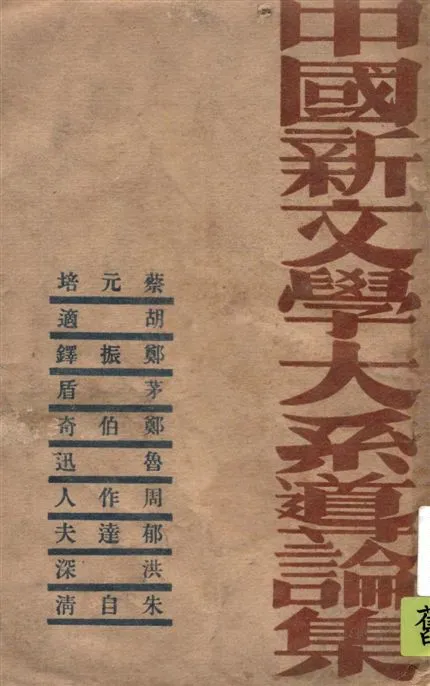 中國新文學大系導論集
蔡元培
胡適
鄭振鐸
茅盾
鄭伯奇
魯迅
周作人
郁達夫
洪深
朱自清
舊